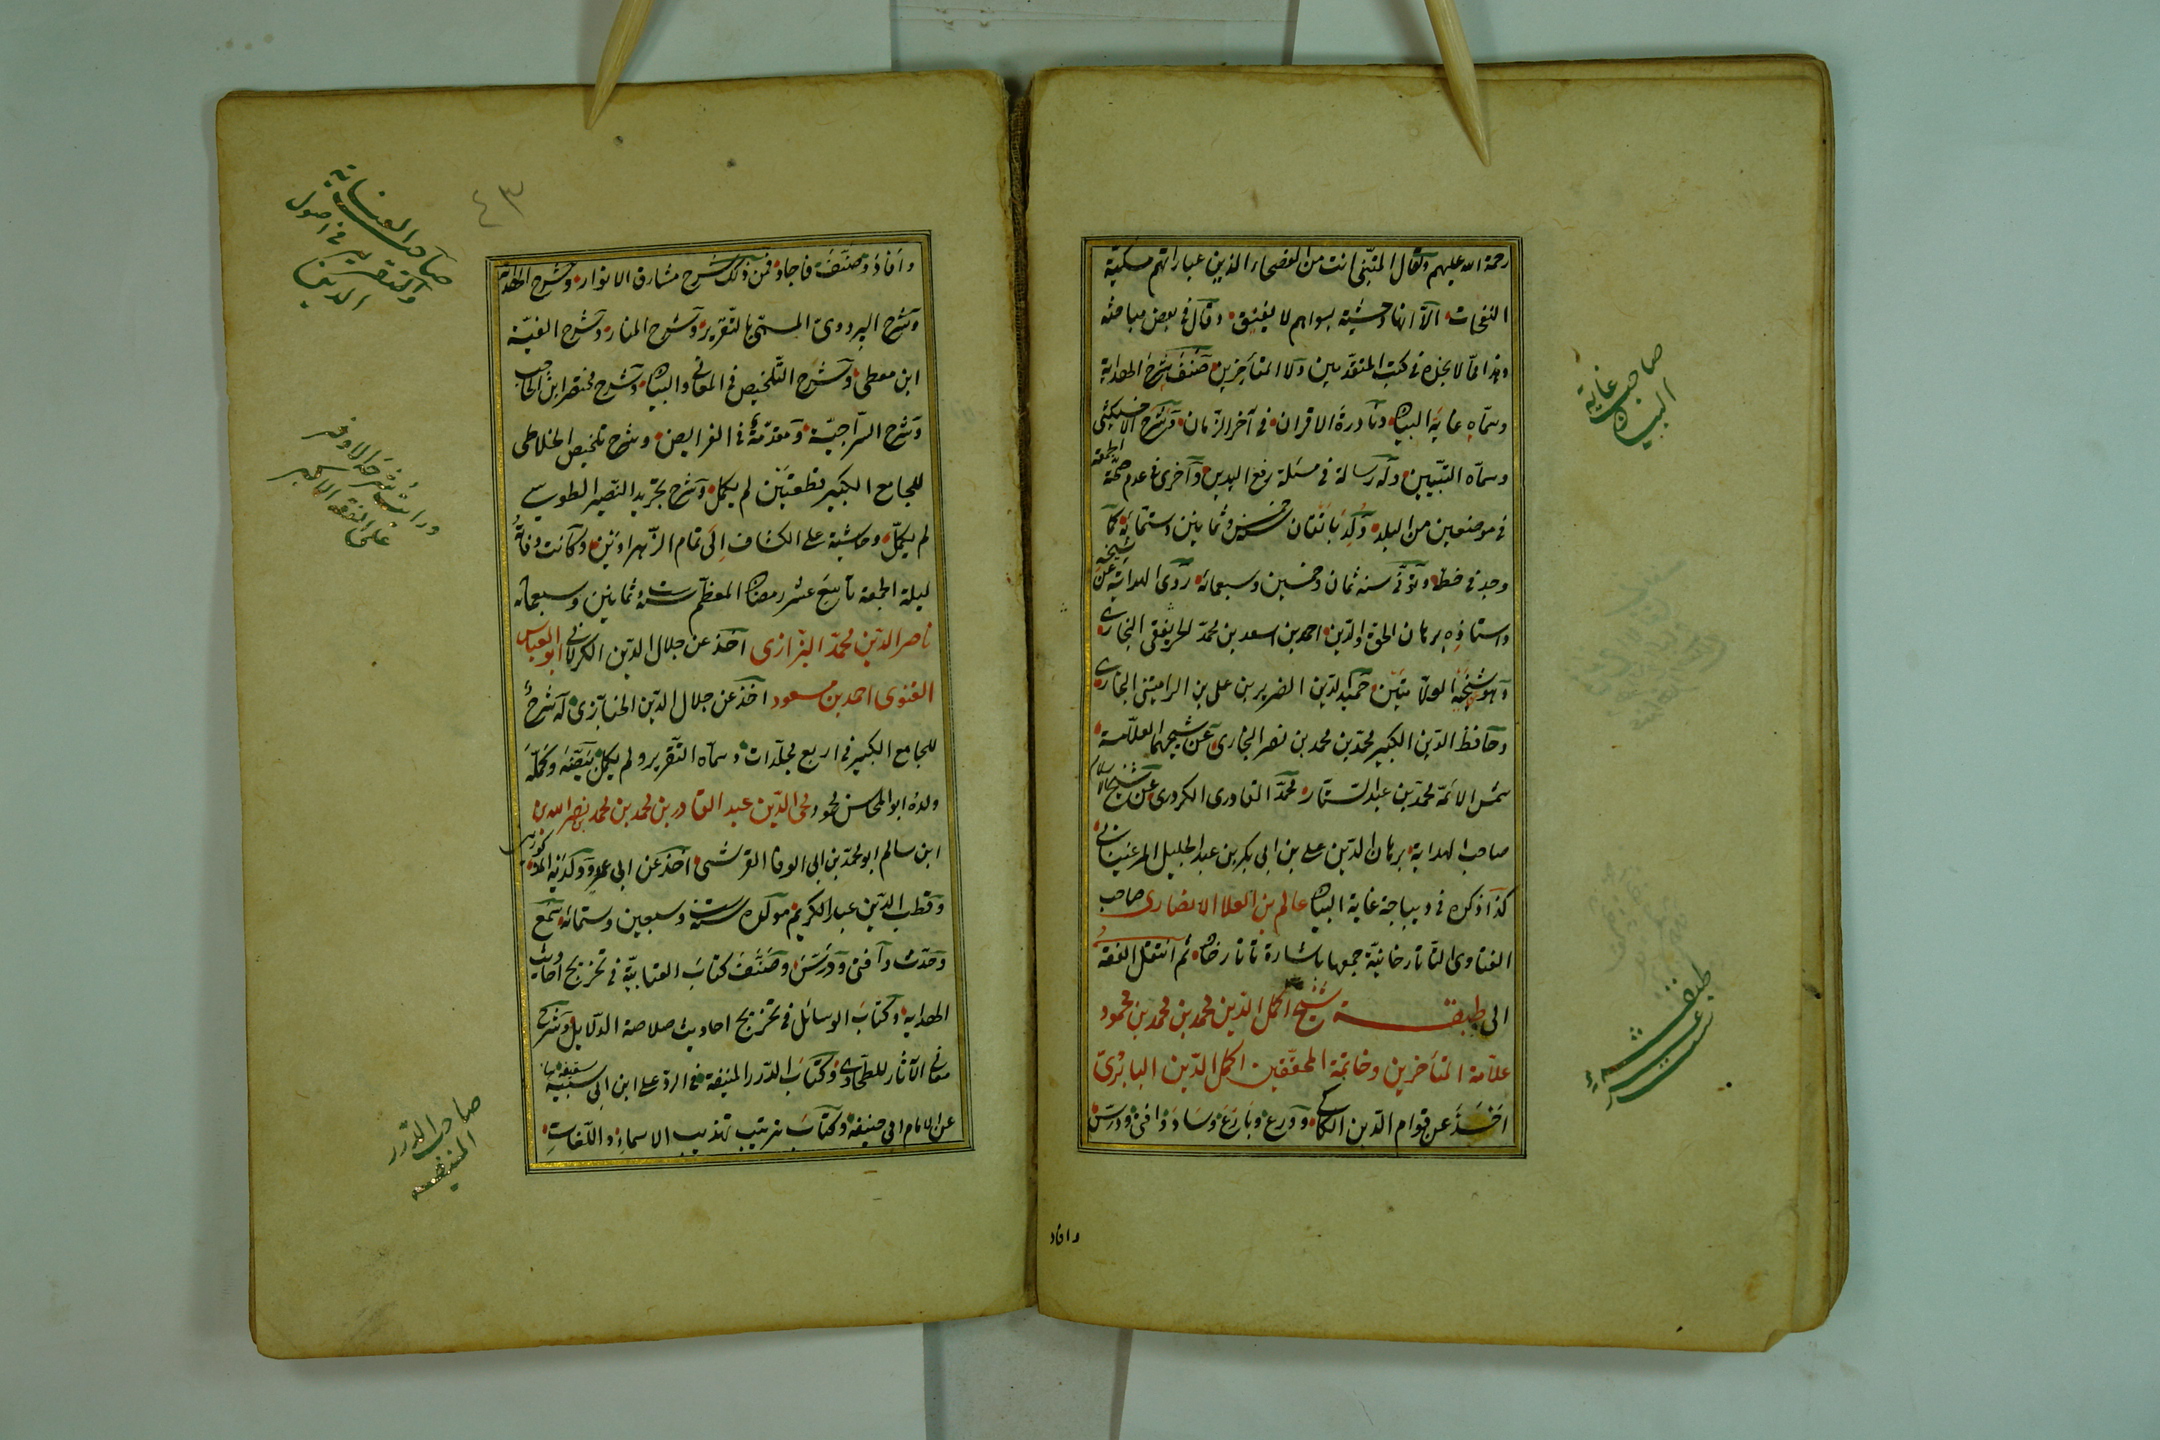 رحمة الله عليهم وتقال المتبنى انت من الفصحاء الذين عباراتهم مسكية
النفحات الا انها وحشية بسواهم لا يفيق وقال في بعض مباحثه
وهذا مما لا تجده في كتب المتقدمين ولا المتأخرين صنف شرح الهداية
وسماه غاية البيان ونادرة الاقران في آخر الزمان وشرح الاخسيكثى
وسماه التبيين وله رسالة في مسئلة رفع اليدين واخرى في عدم صحة الجمعة
في موضعين من البلد ولد باتقان خمس وثمانين وستمائة كما
وجد في خطه وتوفى سنه ثمان وخمسين وسبعمائه روى الهداية عن شيخه
واستاذه برهان الحق والدين احمد بن اسعد بن محمد الخريفغنى البخارى
وهو شيخيه حميد الدين الضرير بن على بن الرامشى البخارى
وحافظ الدين الكبير محمد بن محمد بن نصر البخارى عن شيخهما العلامة
شمس الائمة محمد بن عبد الستار محمد القادرى الكردرى عن شيخ الاسلام
صاحب الهداية برهان الدين على بن ابى بكر بن عبد الجليل المرغينانى
كذا ذكره في ديباجة غاية البيان عالم بن العلا الانصارى صاحب
الفتاوى التاتارخانية جمعها باشارة تاتارخان ثم انتقل الفقه
الى طبقة شيخ اكمل الدين محمد بن محمد بن محمود
علامة المتأخرين وخاتمة المحققين اكمل الدين البابرتى
اخذ عن قوام الدين الكاكى وورع وبارع وساد وافتى ودرس
وافاد
صاحب غاية
البيان
طبقة
عشر
٤٣
وافاد وصنف فاجاد فمن ذلك شرح مشارق الانوار وشرح الهداية
وشرح البزدوى المسمى بالتقرير وشرح المنار وشرح الفية
ابن معطى وشرح التلخيص في المعانى والبيان وشرح مختصر ابن الحاجب
وشرح السراجية ومقدمة في الفرايض وشرح تلخيص الخلاطى
للجامع الكبير قطعتين لم يكمل وشرح تجريد النصير الطوسى
لم يكمل وحاشية على الكشاف الى تمام الزهراوين وكانت وفاته
ليلة الجمعة تاسع عشر رمضان المعظم سنة ست وثمانين وسبعمائه
ناصر الدين محمد البزازى اخذ عن جلال الدين الكرلانى ابو العباس
القنوى احمد بن مسعود اخذ عن جلال الدين الخبازى له شرح
للجامع الكبير في اربع مجلدات وسماه التقرير ولم يكمل تبييضه وكمله
ولده ابو المحاسن محمود محى الدين عبد القادر بن محمد بن محمد بن نصر الله بن
ابن سالم ابو محمد بن ابى الوفا القرشى اخذ عن ابى عمرو ولديه المذكورين
وقطب الدين عبد الكريم مولده سنة ست وسبعين وستمائه سمع
وحدث وافتى ودرس وصنف كتاب العناية في تخريج احاديث
الهداية وكتاب الوسائل في تخريج احاديث خلاصة الدلايل وشرح
معانى الآثار للطحاوى وكتاب الدرر المنيفة في الرد على ابن ابى شيبة
عن الامام ابى حنيفة وكتاب ترتيب تهذيب الاسماء واللغات
صاحب العناية
والتقرير في اصول
الدين
شرحه الاوفر
على الفقه الاكبر
صاحب الدرر
المنيفه